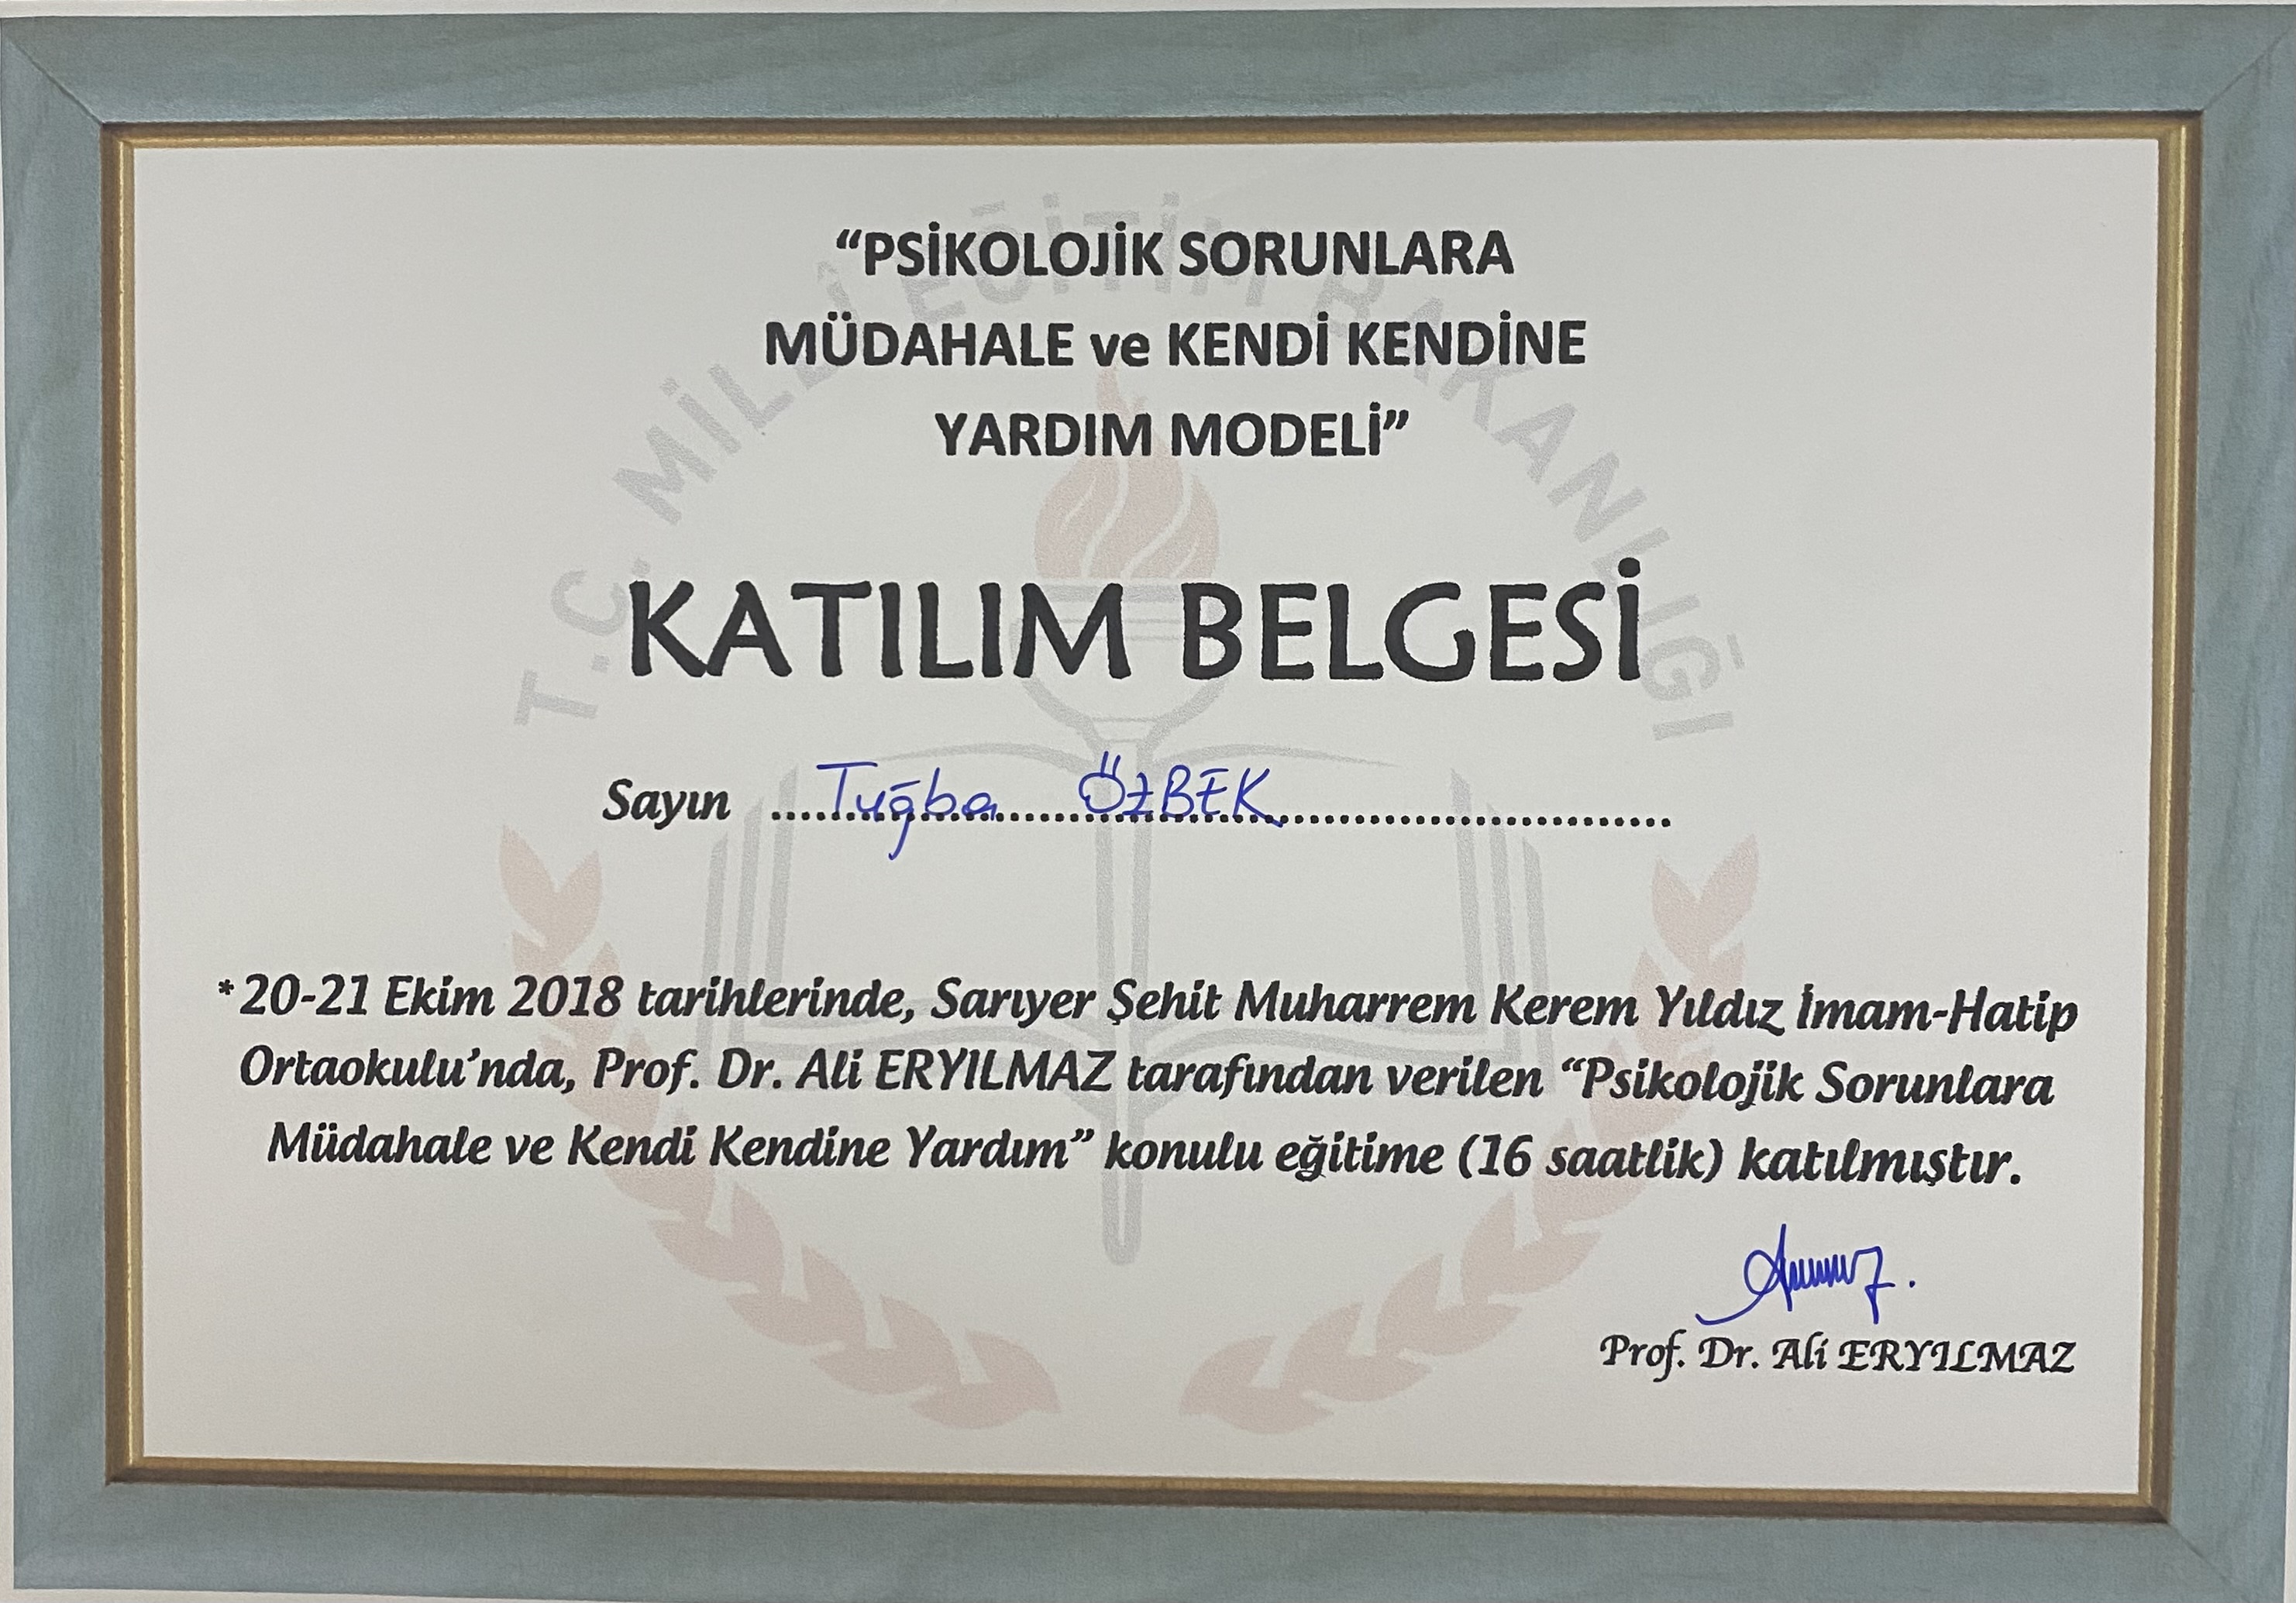 T.C. MİLLÎ EĞİTİM BAKANLIĞI
“PSİKOLOJİK SORUNLARA
MÜDAHALE ve KENDİ KENDİNE
YARDIM MODELİ”
KATILIM BELGESİ
Sayın Tuğba ÖZBEK
*20-21 Ekim 2018 tarihlerinde, Sarıyer Şehit Muharrem Kerem Yıldız İmam-Hatip
Ortaokulu’nda, Prof. Dr. Ali ERYILMAZ tarafından verilen “Psikolojik Sorunlara
Müdahale ve Kendi Kendine Yardım” konulu eğitime (16 saatlik) katılmıştır.
Prof. Dr. Ali ERYILMAZ